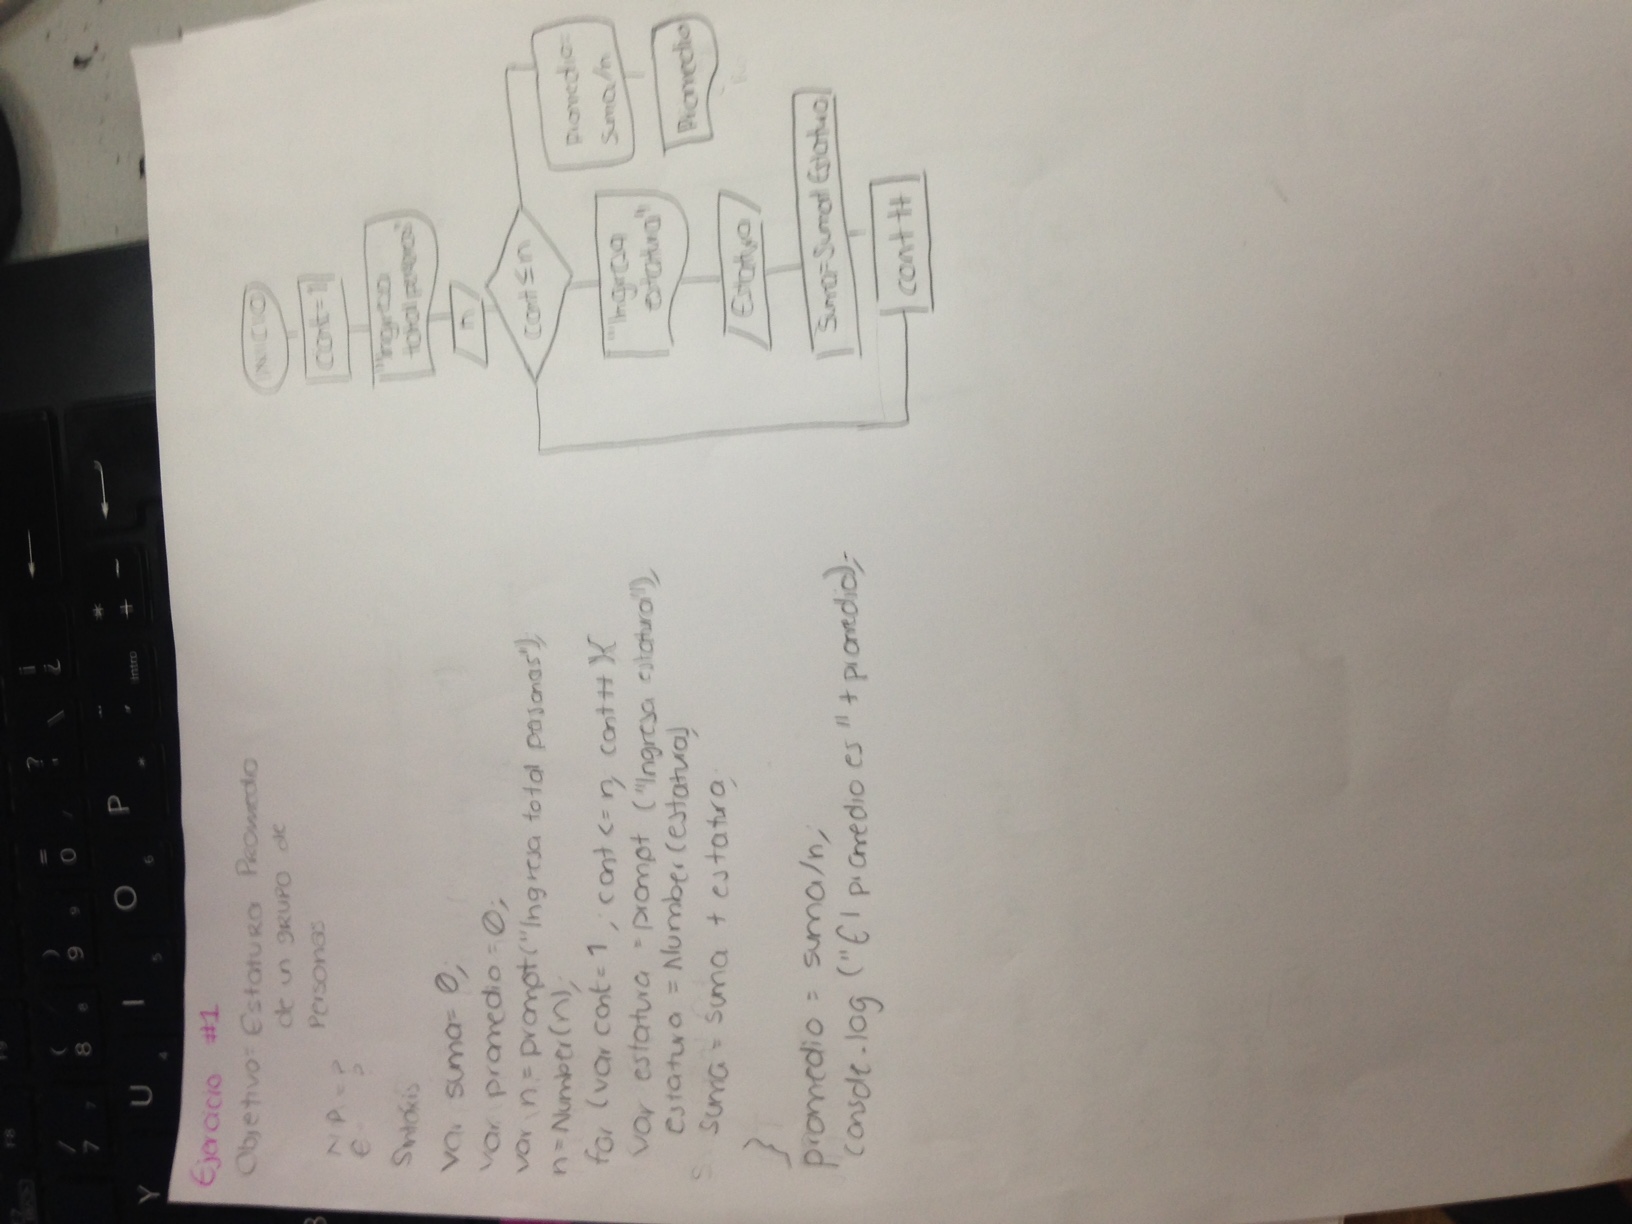 F8
F9
/ 7
( 8 8
) 9 9
= 0 /
? ' \
¡ ¿
Y
U 4
I 5
O 6
P *
Intro
* + -
Ejercicio #1
Objetivo= Estatura Promedio
de un GRUPO de
Personas
N P. = ?
E = ?
Sintáxis
var suma= 0;
var promedio = 0;
var n = prompt("Ingresa total pesonas");
n = Number(n);
for (var cont= 1 ; cont <= n; cont++){
var estatura = prompt ("Ingresa estatura");
estatura = Number(estatura)
suma = suma + estatura;
}
promedio = suma/n;
console.log ("El promedio es " + promedio);
INICIO
cont=1
"Ingresa
total personas"
n
cont ≤ n
"Ingresa
estatura"
Estatura
Suma=Suma+Estatura
cont ++
Promedio=
suma/n
Promedio